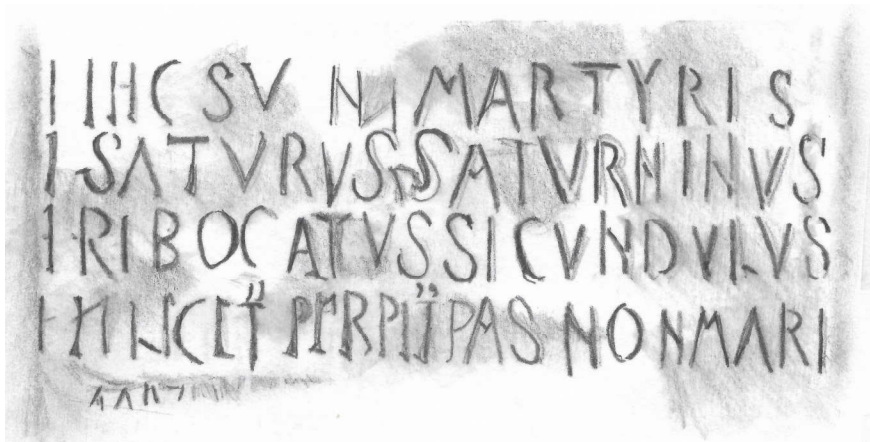 I IHC SVNI MARTYRIS
I SATVRVS SATVRNINVS
I RIBOCATVS SICVNDVLVS
I PERPIT PAS NON MARI